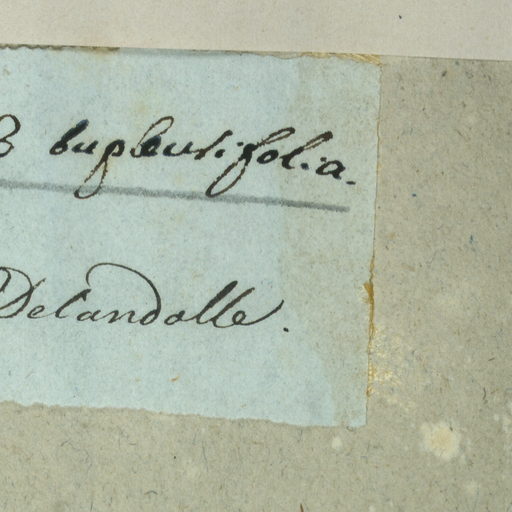 β bupleurifolia.
Delandolle.